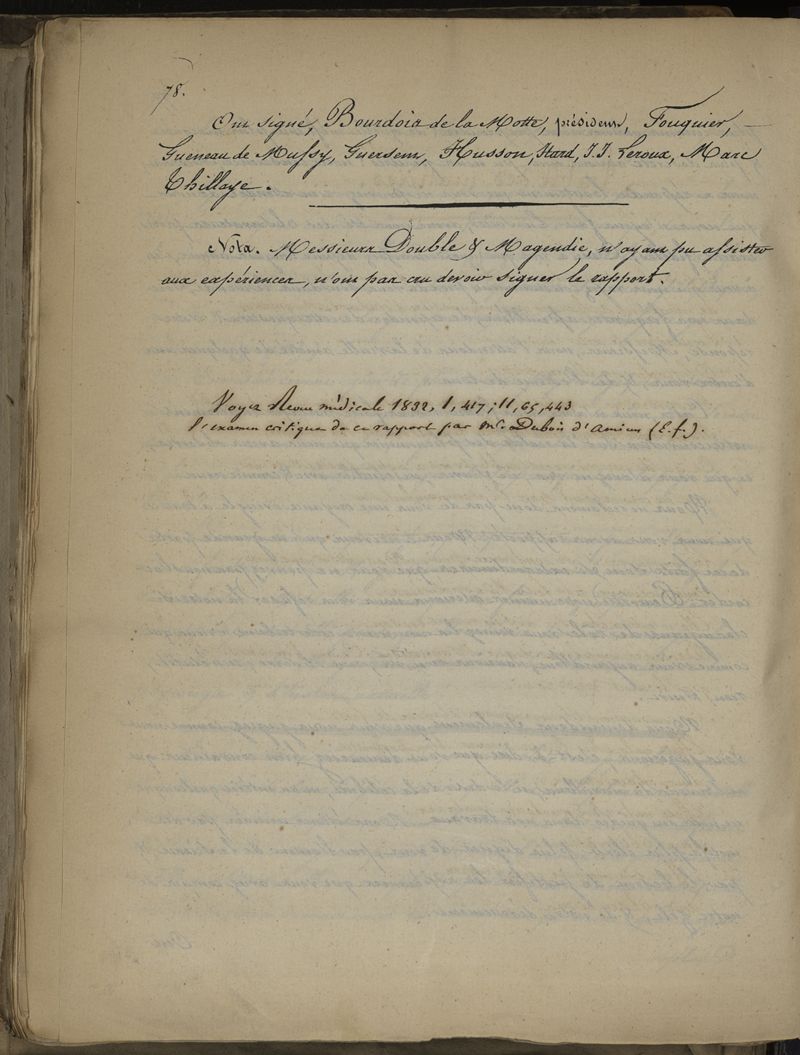 78.
Ont signé, Bourdois de la Motte, président, Fouquier,
Gueneau de Mussy, Guersent, Husson, Itard, J. J. Leroux, Marc
Thillaye.
Nota. Messieurs Double & Magendie, n'ayant pu assister
aux expériences, n'ont pas cru devoir signer le rapport.
Voyez Revue médicale 1832, I, 417; II, 65, 443
l'examen critique de ce rapport par Mr. Dubois d'Amiens (E. f.).